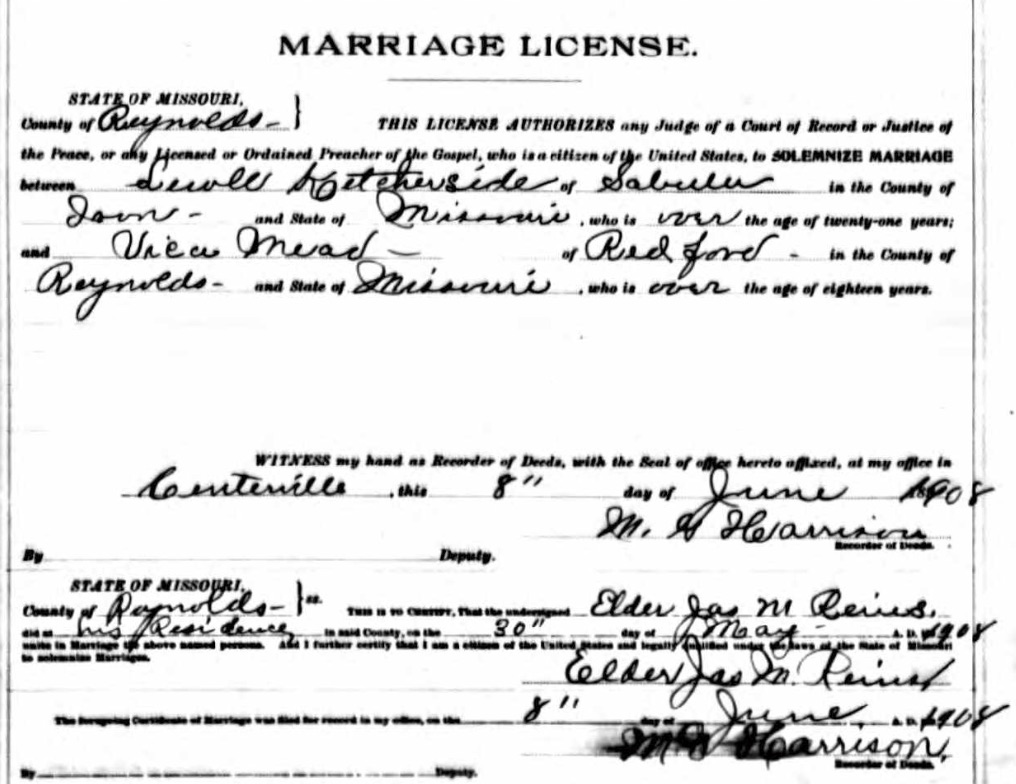 MARRIAGE LICENSE.
STATE OF MISSOURI,
County of Reynolds - } THIS LICENSE AUTHORIZES any Judge of a Court of Record or Justice of
the Peace, or any Licensed or Ordained Preacher of the Gospel, who is a citizen of the United States, to SOLEMNIZE MARRIAGE
between Hetcherside of Sabula in the County of
Iron - and State of Missouri, who is over the age of twenty-one years;
and Mead - of Redford - in the County of
Reynolds - and State of Missouri, who is over the age of eighteen years.
WITNESS my hand as Recorder of Deeds, with the Seal of office hereto affixed, at my office in
Centerville, this 8" day of June 1908
M. Harrison
By Deputy. Recorder of Deeds.
STATE OF MISSOURI,
County of Reynolds - } ss. THIS IS TO CERTIFY, That the undersigned Elder Jas M
did at his Residence in said County, on the 30" day of May - A. D. 1908
unite in Marriage the above named persons. And I further certify that I am a citizen of the United States and legally qualified under the laws of the State of Missouri
to solemnize Marriages.
Elder Jas M.
The foregoing Certificate of Marriage was filed for record in my office, on the 8" day of June, A. D. 1908
M Harrison,
By Deputy. Recorder of Deeds.